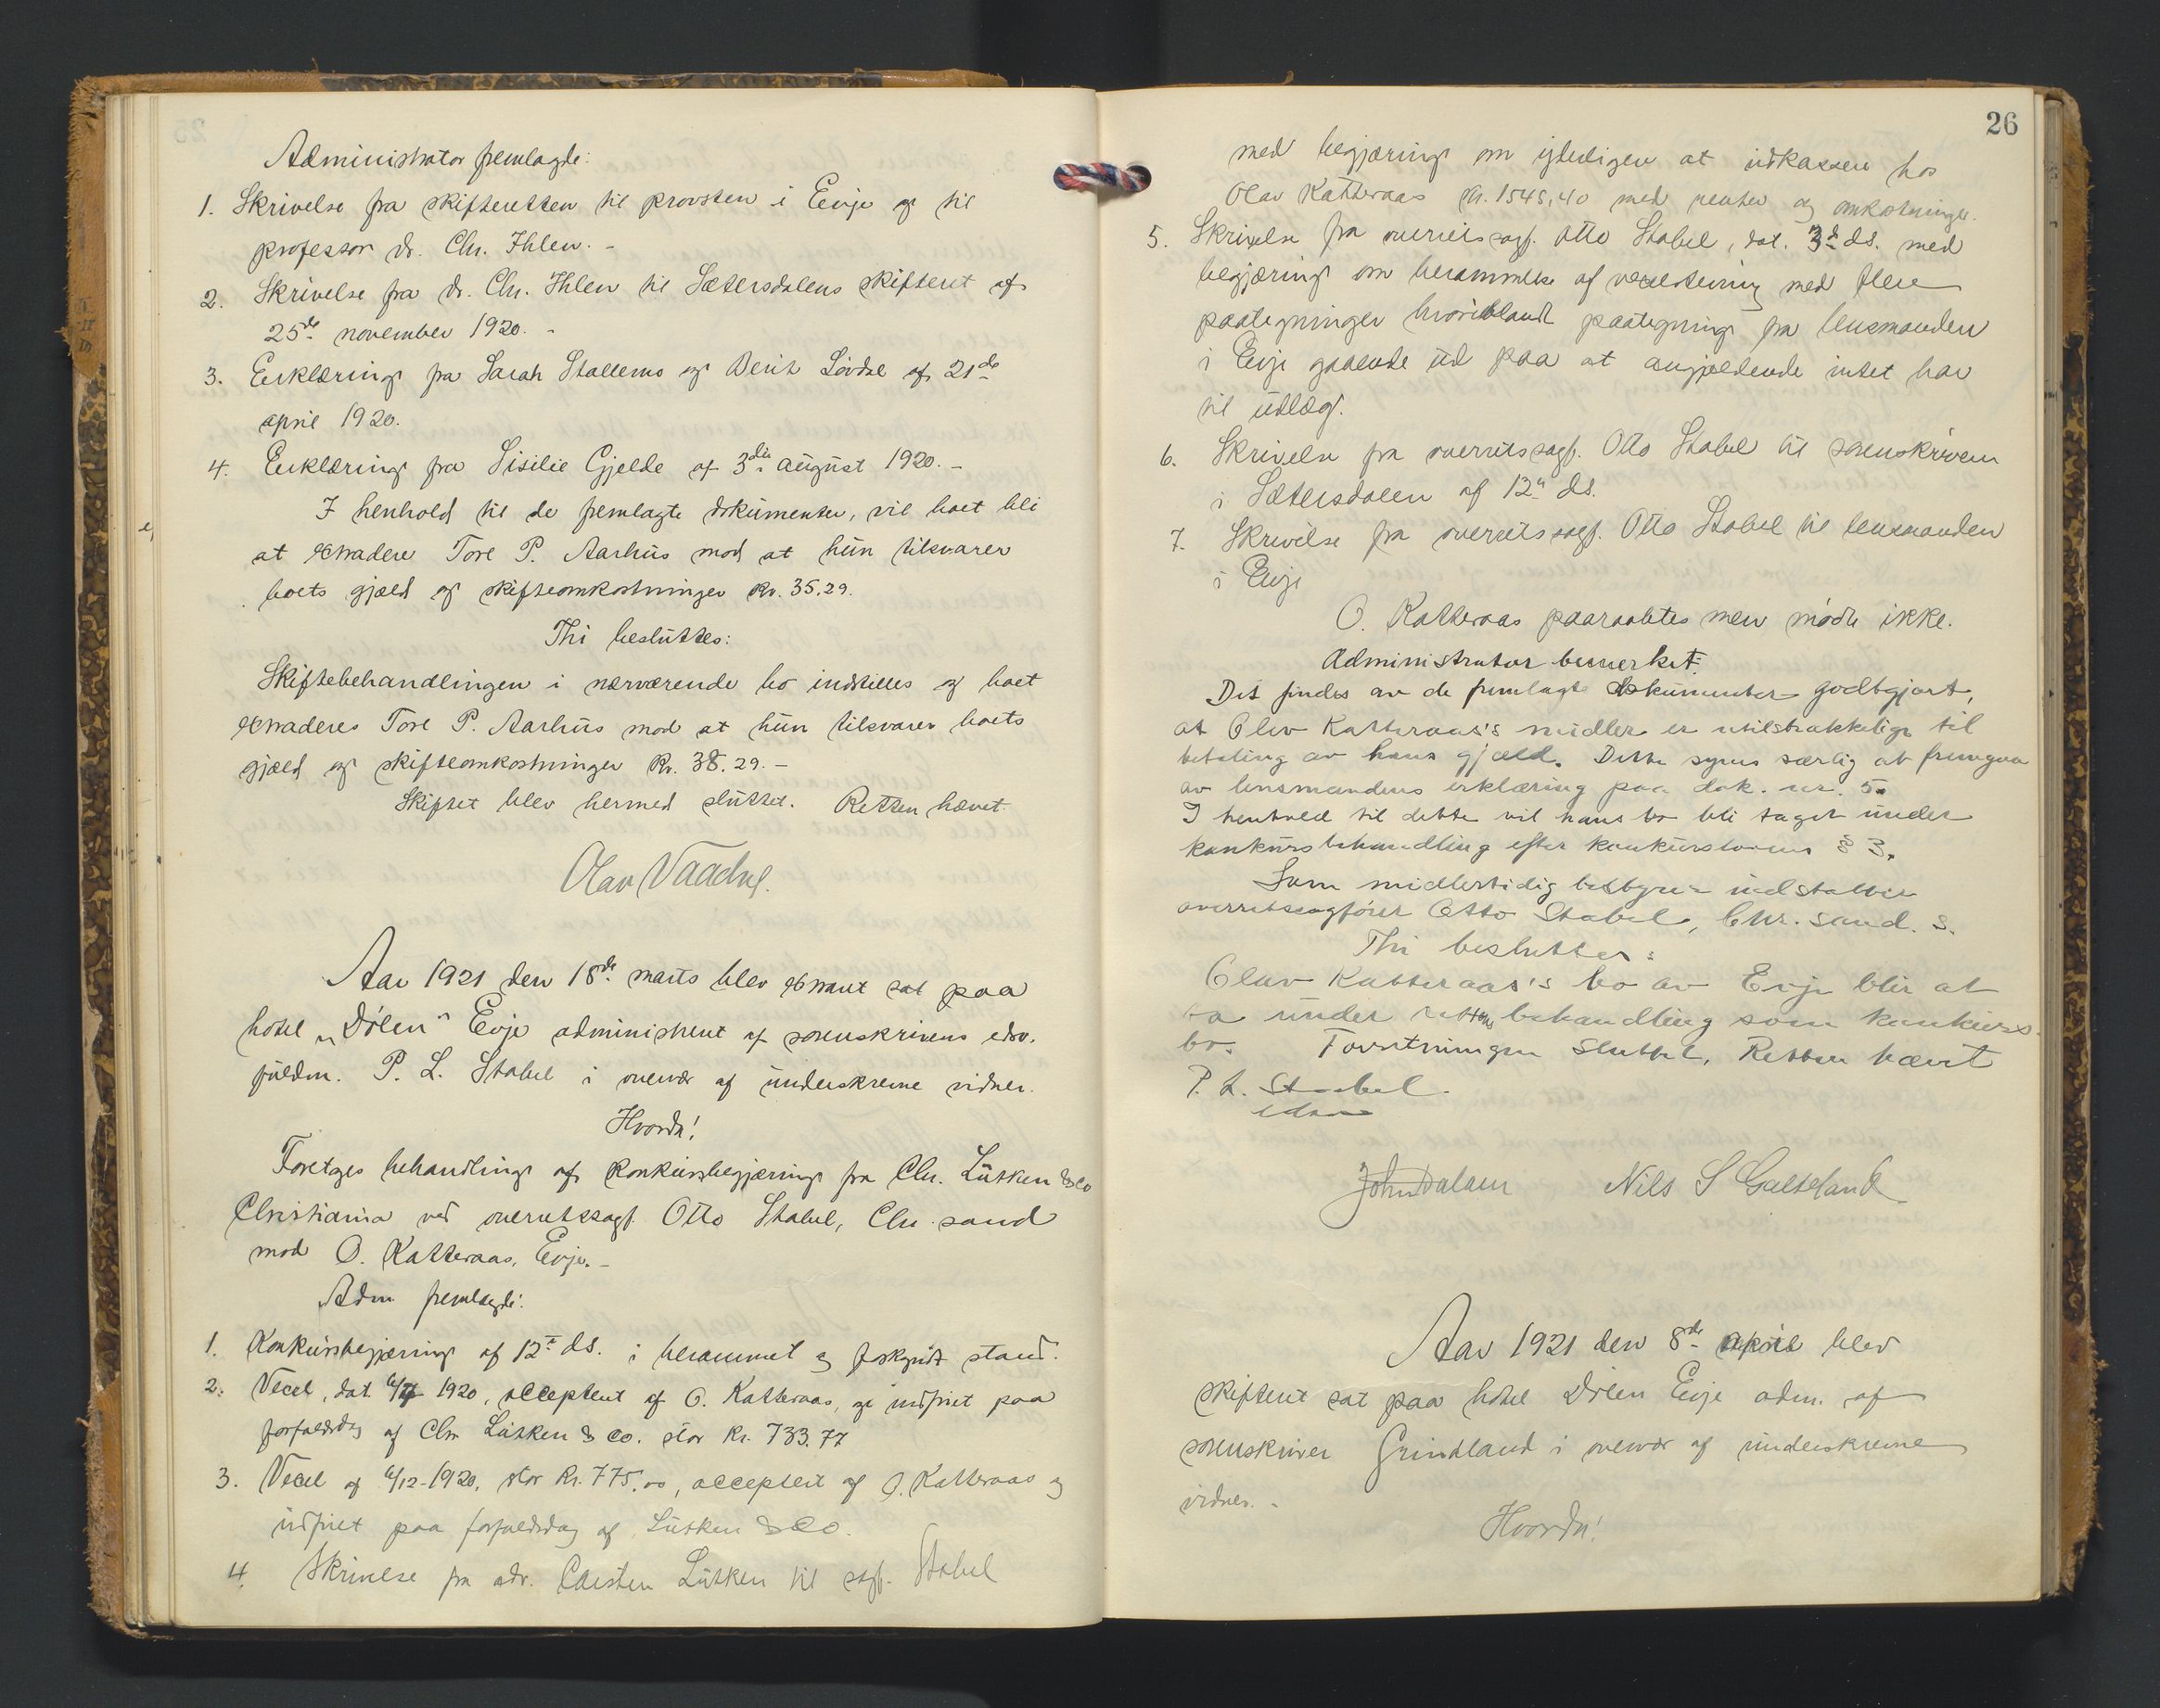 Administrator fremlagde:
1. Skrivelse fra skifteretten til provsten i Evje og til
professor dr. Chr. Ihlen. -
2. Skrivelse fra dr. Chr. Ihlen til Sætersdalens skifteret af
25de november 1920. -
3. Erklæring fra Sarah Stallemo og Berit Lövdal af 21de
april 1920.
4. Erklæring fra Sisilie Gjelde af 3die august 1920. -
I henhold til de fremlagte dokumenter, vil boet bli
at extradere Tore P. Aarhus mod at hun tilsvarer
boets gjæld og skifteomkostninger kr. 35.29.
Thi besluttes:
Skiftebehandlingen i nærværende bo indstilles og boet
extraderes Tore P. Aarhus mod at hun tilsvarer boets
gjæld og skifteomkostninger kr. 38.29. -
Skiftet blev hermed sluttet. Retten hævet.
Olav
Aar 1921 den 18de marts blev sat paa
hotel „Dölen" Evje administrert af sorenskriverens edsv.
fuldm. P. L. Stabel i overvær af underskrevne vidner.
Hvorda!
Foretoges behandling af konkursbegjæring fra Chr. Lütken & Co
Christiania ved overretssagf. Otto Stabel, Chr. sand
mod O. Katteraas, Evje. -
Adm fremlagde:
1. Konkursbegjæring af 12te ds. i berammet og forkyndt stand.
2. Vexel, dat. 1920, accepteret af O. Katteraas, og indfriet paa
forfaldsdag af Chr Lütken & Co. stor kr. 733.77
3. Vexel af 6/12-1920, stor kr. 775.00, acceptert af O. Katteraas og
indfriet paa forfaldsdag af Lütken & Co.
4. Skrivelse fra adv. Carsten Lütken til sagf. Stabel
26
med begjæring om yderligere at indkassere hos
Olav Katteraas kr. 1548,40 med renter og omkostninger.
5. Skrivelse fra overretssagf. Otto Stabel, dat. 3d ds. med
begjæring om berammelse af med flere
paategninger hvoriblandt paategning fra lensmanden
i Evje gaaende ud paa at angjældende intet har
til utlæg.
6. Skrivelse fra overretssagf. Otto Stabel til sorenskriveren
i Sætersdalen af 12te ds.
7. Skrivelse fra overretssagf. Otto Stabel til lensmanden
i Evje
O. Katteraas paaraabtes men mödte ikke.
Administrator bemerket:
Det findes av de fremlagte dokumenter godtgjort,
at Olav Katteraas's midler er utilstrækkelige til
betaling av hans gjæld. Dette synes særlig at fremgaa
av lensmandens erklæring paa dok. nr. 5.
I henhold til dette vil hans bo bli taget under
konkursbehandling efter konkurslovens § 3.
Som midlertidig bestyrer indstalles
overretssagförer Otto Stabel, Chr. sand. S.
Thi besluttes:
Olav Katteraas's bo av Evje blir at
ta under rettens behandling som konkurs-
bo. Forretningen sluttet, Retten hævet
P. L. Stabel
edsv
John Dalaen Nils S Galteland
Aar 1921 den 8de april blev
skifteret sat paa hotel Dölen Evje adm. af
sorenskriver Grindland i overvær af underskrevne
vidner. -
Hvorda!